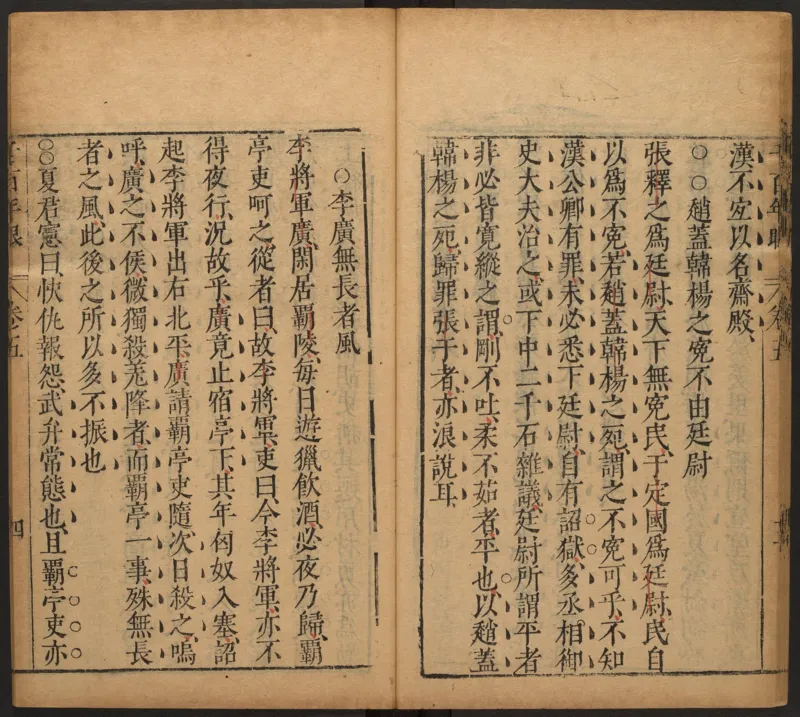 漢不宜以名齋殿
○○趙蓋韓楊之寃不由廷尉
張釋之爲廷尉天下無寃民于定國爲廷尉民自
以爲不寃若趙蓋韓楊之死謂之不寃可乎不知
漢公卿有罪未必悉下廷尉自有詔獄多丞相御
史大夫治之或下中二千石雜議廷尉所謂平者
非必皆寛縱之謂剛不吐柔不茹者平也以趙蓋
韓楊之死歸罪張于者亦浪說耳
○李廣無長者風
李將軍廣閑居霸陵每日遊獵飲酒必夜乃歸霸
亭吏呵之從者曰故李將軍吏曰今李將軍亦不
得夜行況故乎廣竟止宿亭下其年匈奴入塞詔
起李將軍出右北平廣請霸亭吏隨次日殺之嗚
呼廣之不侯微獨殺羗降者而霸亭一事殊無長
者之風此後之所以多不振也
○○夏君憲曰快仇報怨武弁常態也且霸亭吏亦
百年眼 卷五 四